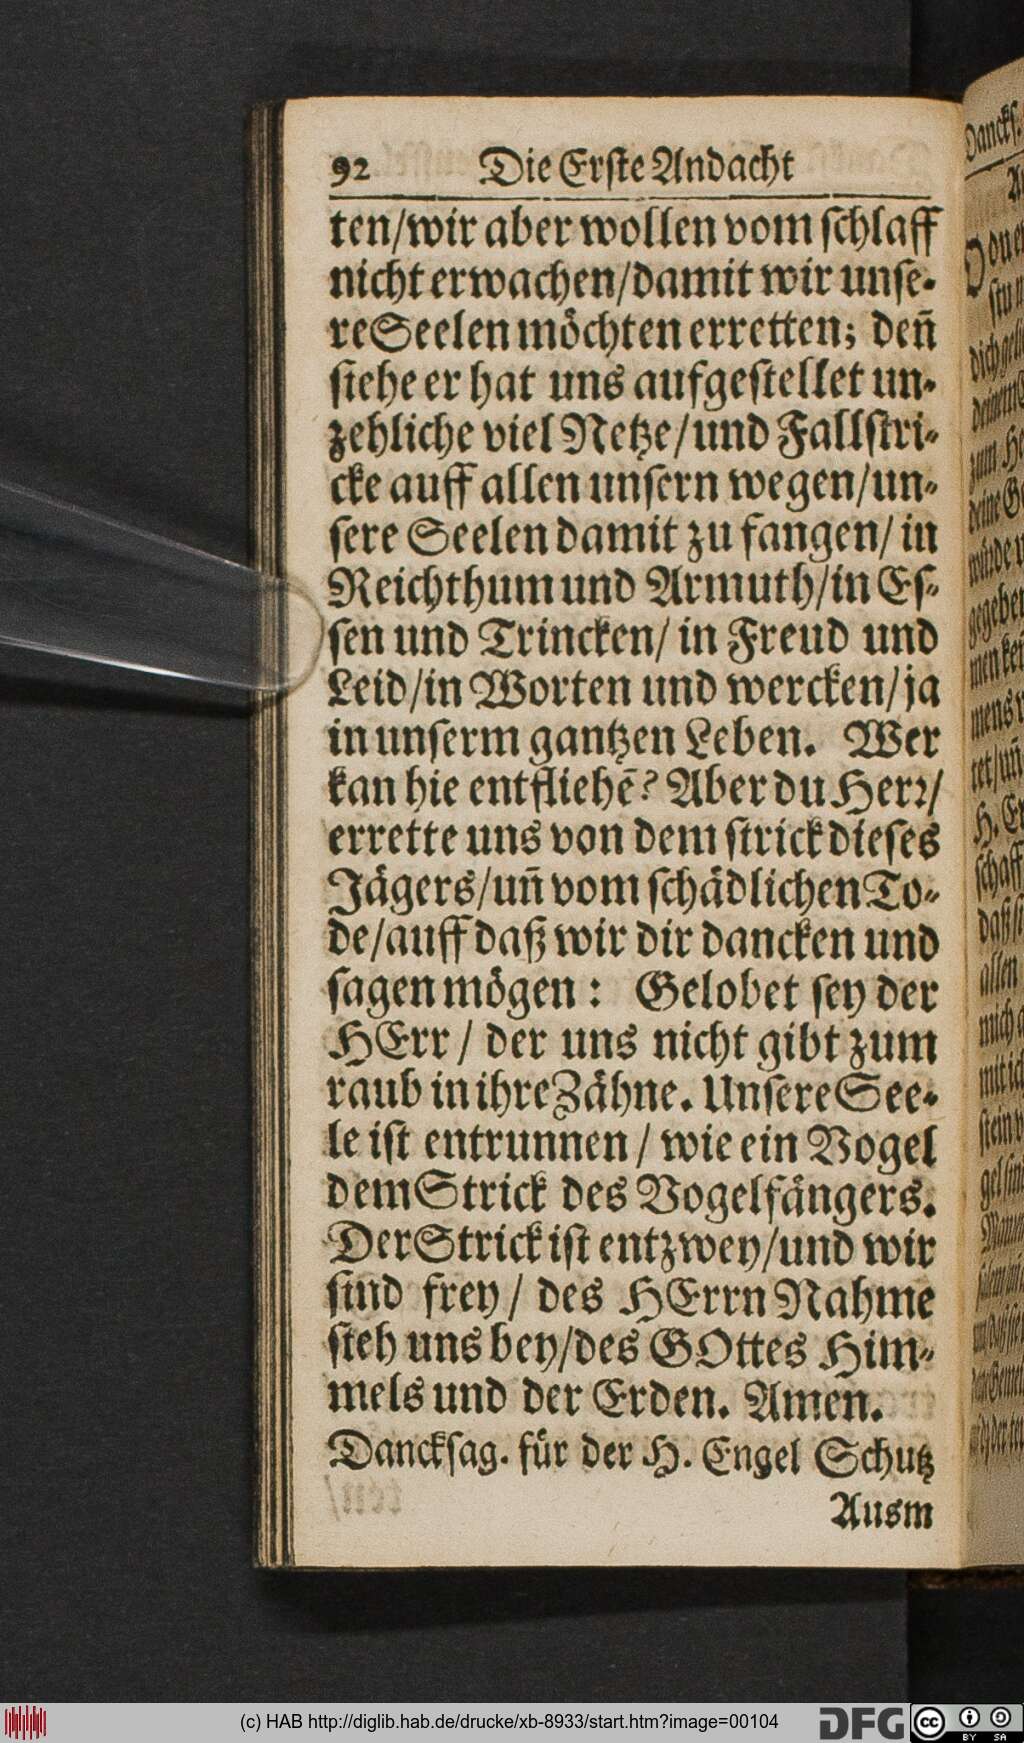 92 Die Erste Andacht
ten/wir aber wollen vom schlaff
nicht erwachen/damit wir unse-
re Seelen möchten erretten; deñ
siehe er hat uns aufgestellet un-
zehliche viel Netze/und Fallstri-
cke auff allen unsern wegen/un-
sere Seelen damit zu fangen/ in
Reichthum und Armuth/in Es-
sen und Trincken/ in Freud und
Leid/in Worten und wercken/ja
in unserm gantzen Leben. Wer
kan hie entfliehē? Aber du Herr/
errette uns von dem strick dieses
Jägers/uñ vom schädlichen To-
de/auff daß wir dir dancken und
sagen mögen: Gelobet sey der
HErr/ der uns nicht gibt zum
raub in ihre Zähne. Unsere See-
le ist entrunnen/ wie ein Vogel
dem Strick des Vogelfängers.
Der Strick ist entzwey/und wir
sind frey/ des HErrn Nahme
steh uns bey/des GOttes Him-
mels und der Erden. Amen.
Dancksag. für der H. Engel Schutz
Ausm
(c) HAB http://diglib.hab.de/drucke/xb-8933/start.htm?image=00104
DFG
cc BY SA